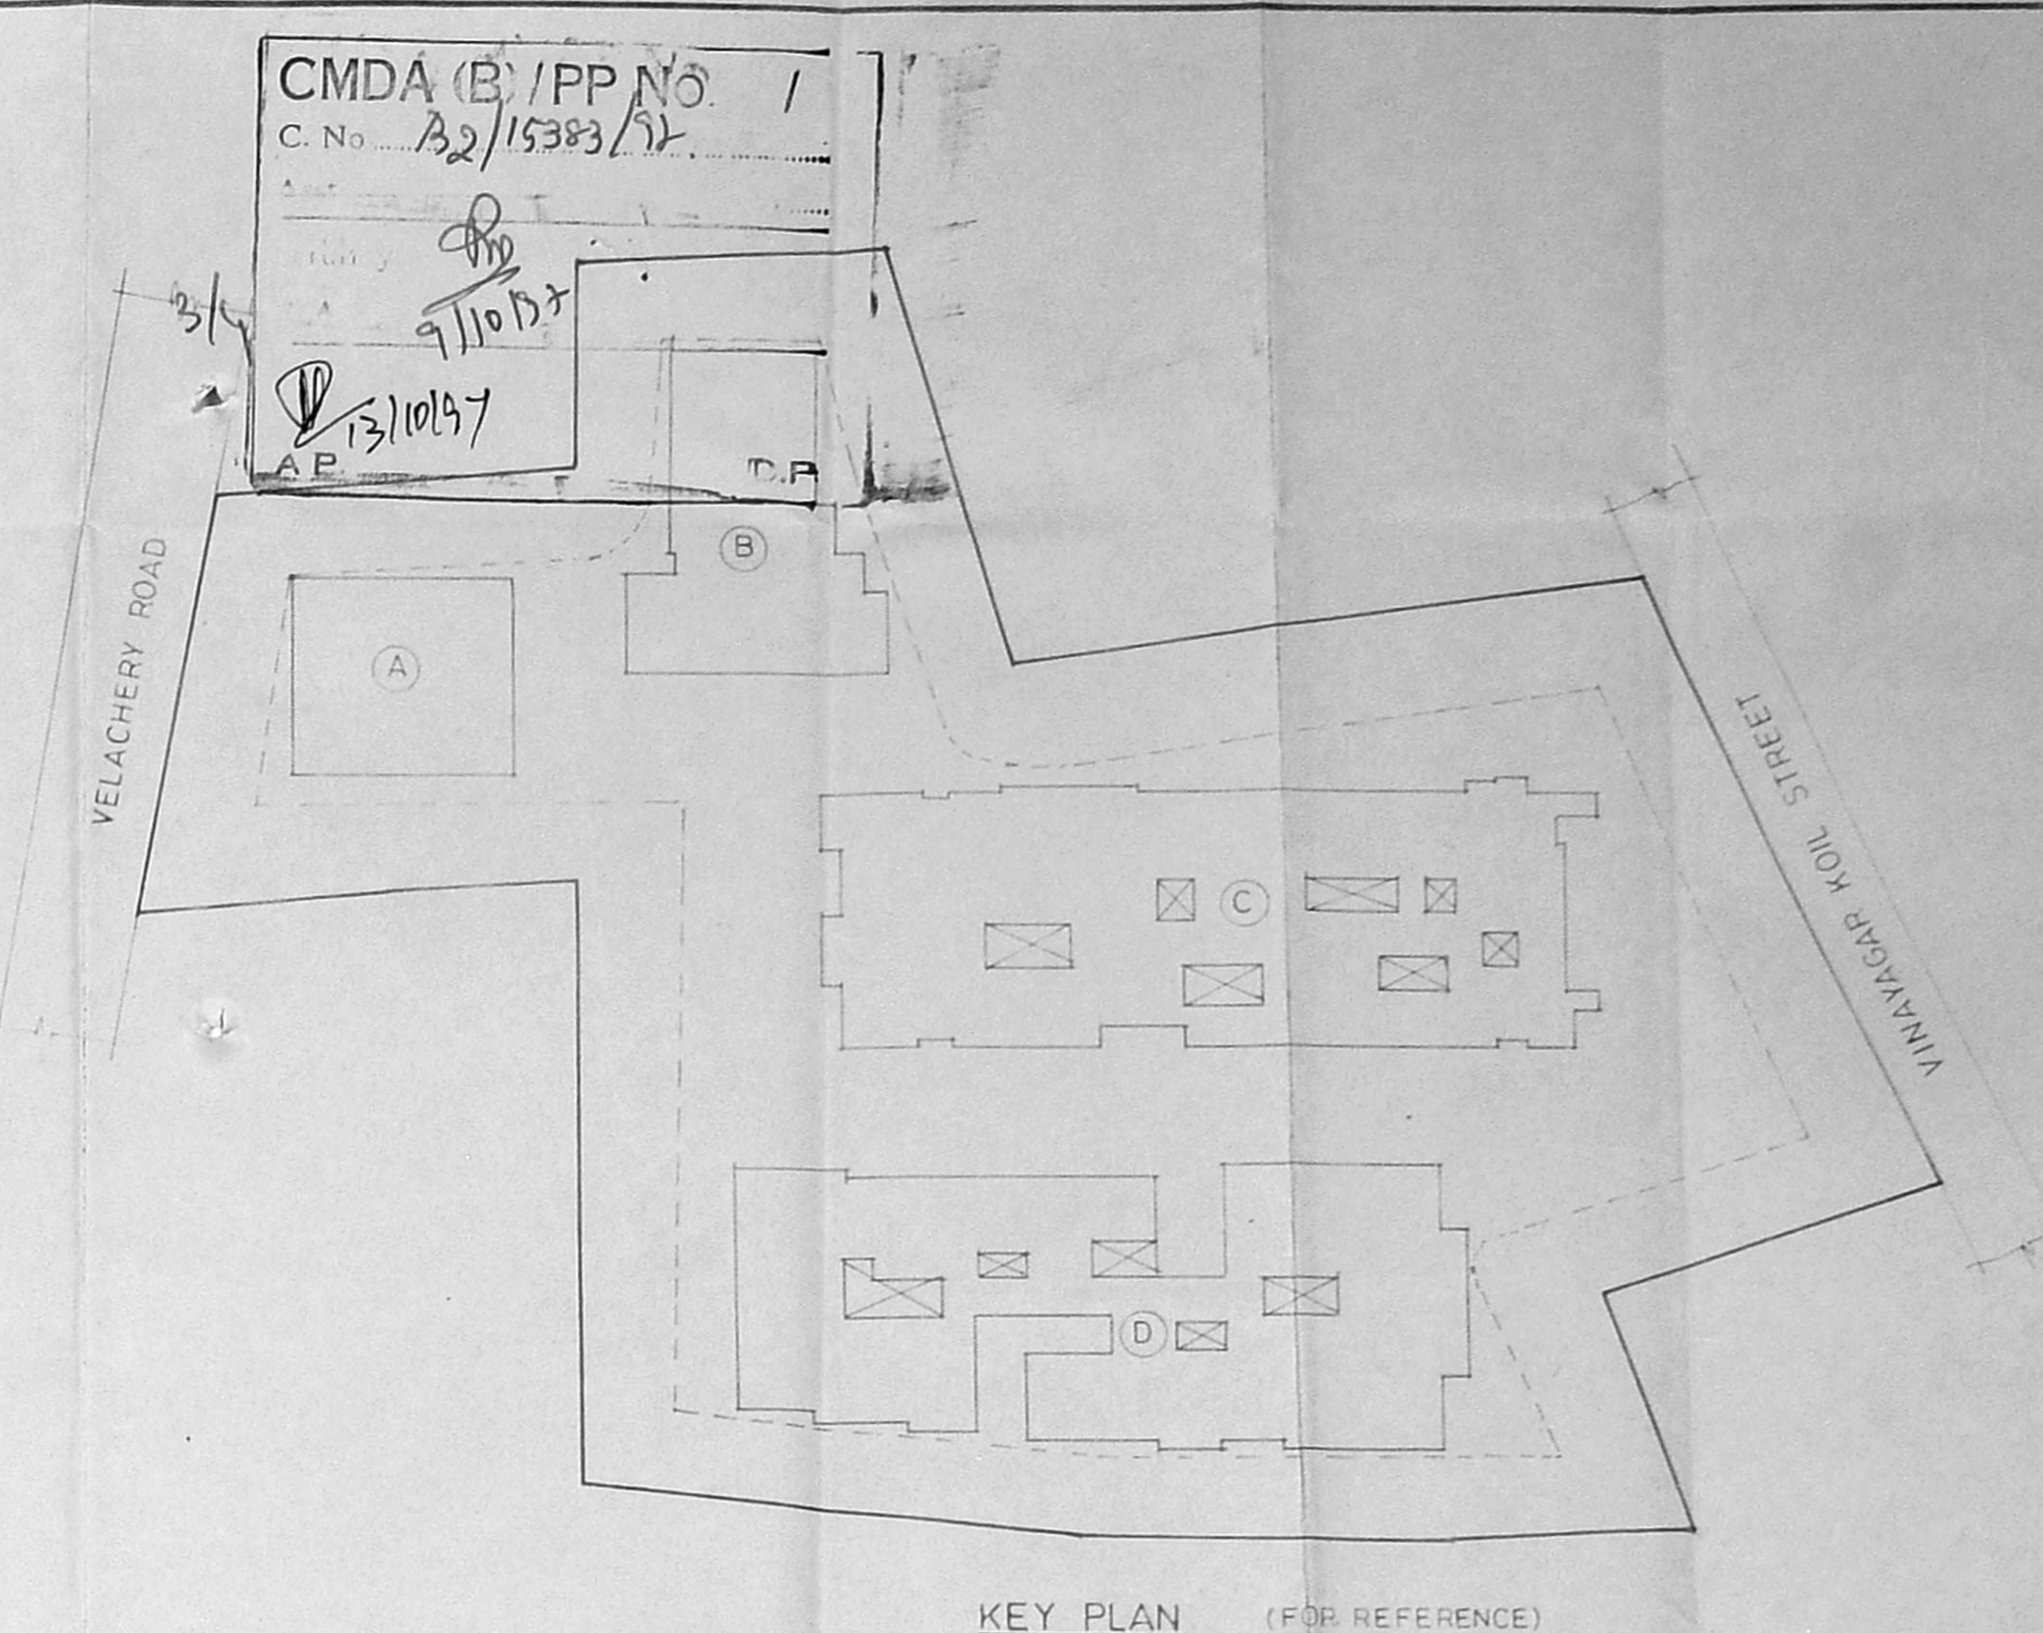 CMDA (B) / PP No. /
C. No B2/15383/97
9/10/97
3/4
13/10/97
A P. D.P
VELACHERY ROAD
A
B
C
D
VINAYAGAR KOIL STREET
KEY PLAN (FOR REFERENCE)